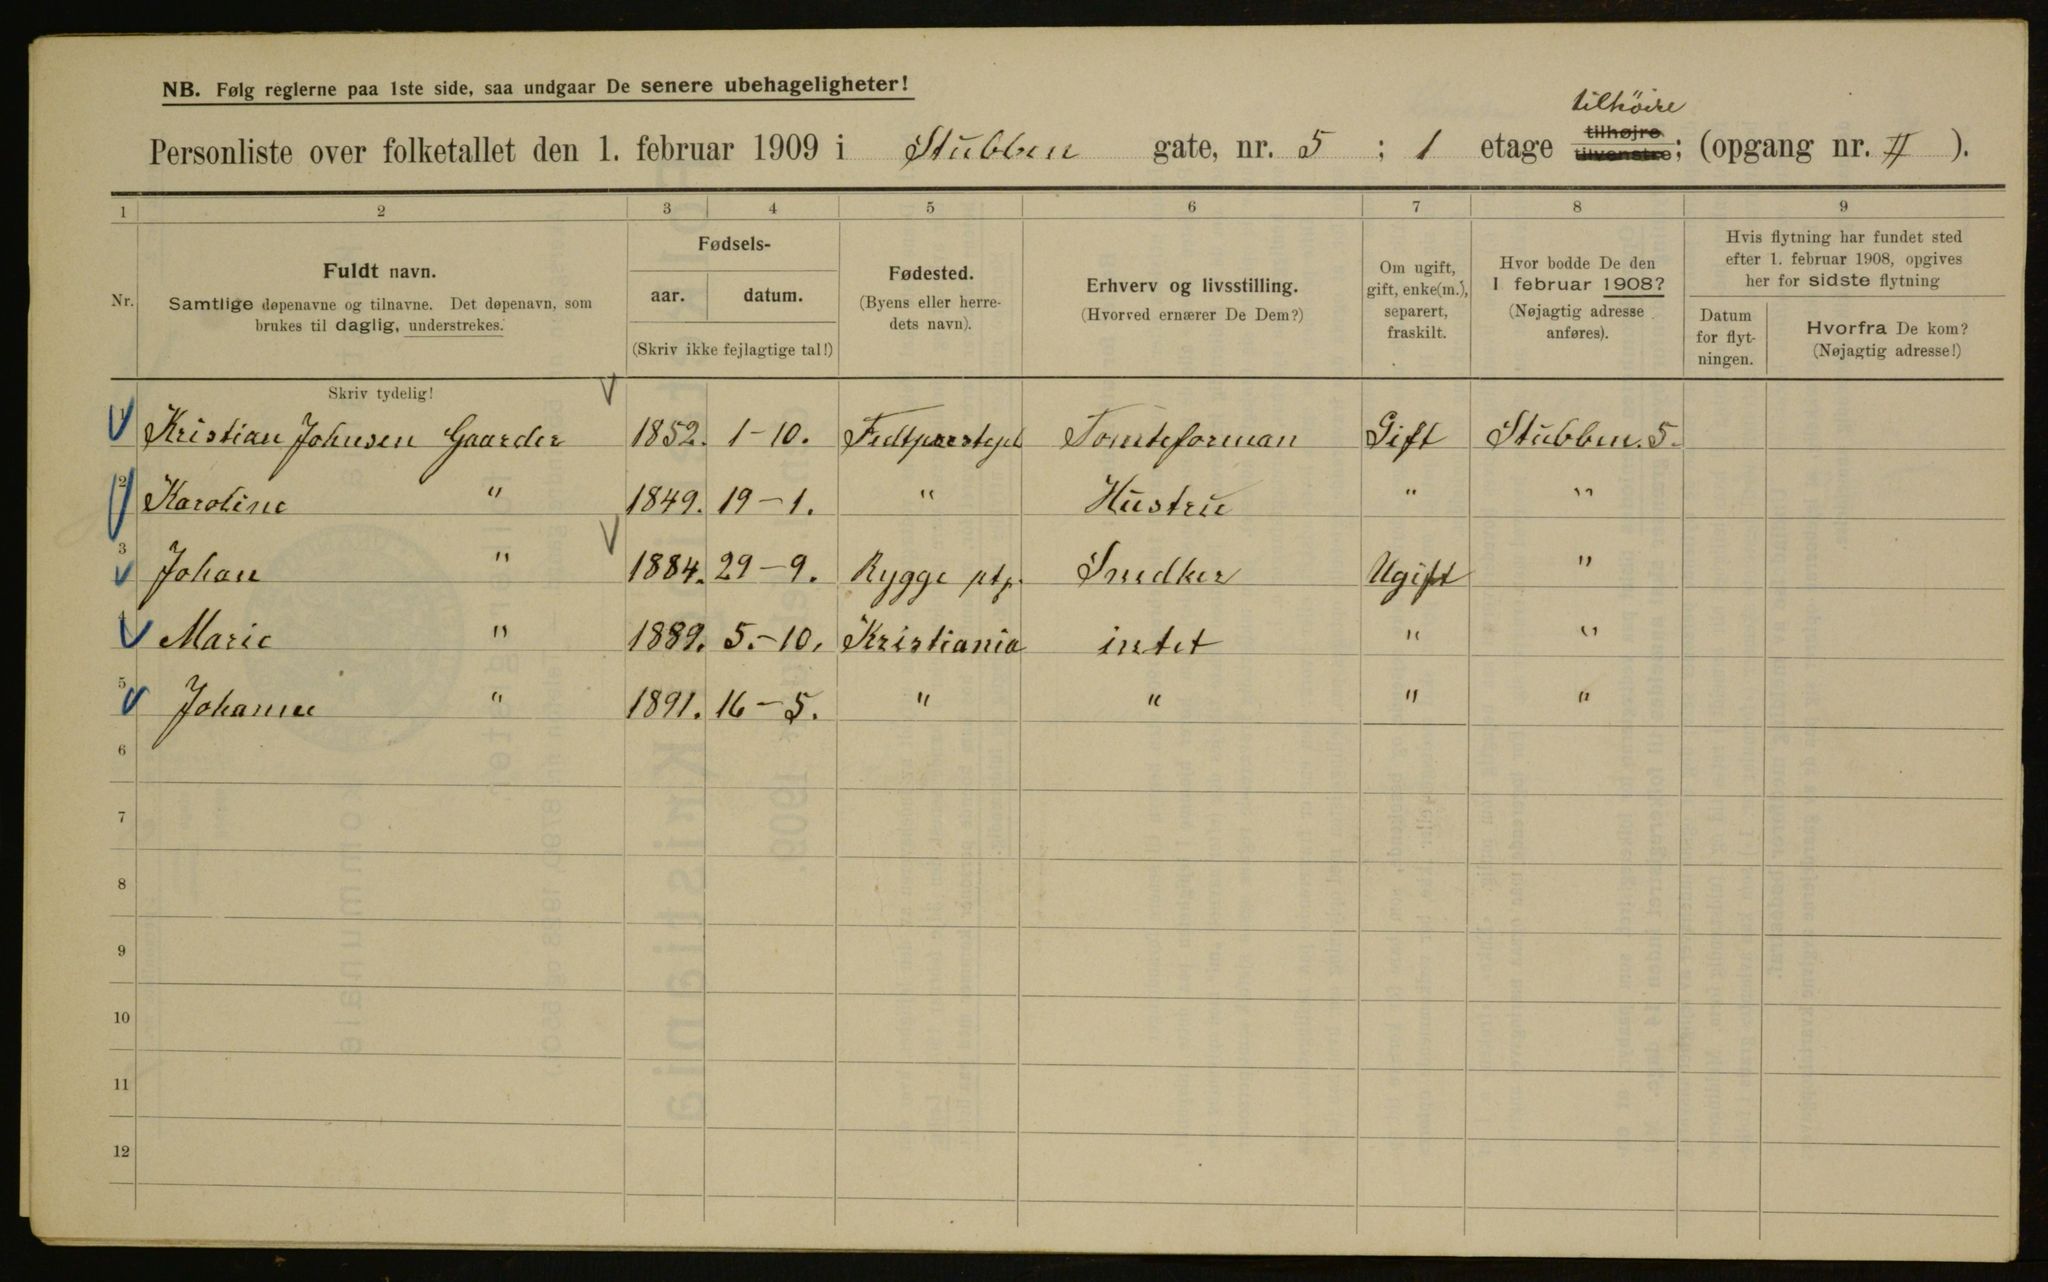 NB. Følg reglerne paa 1ste side, saa undgaar De senere ubehageligheter!
tilhöire
Personliste over folketallet den 1. februar 1909 i Stubben gate, nr. 5 ; 1 etage tilhøjre tilvenstre; (opgang nr. II ).
1 2 3 4 5 6 7 8 9
Nr.
Fuldt navn.
Samtlige døpenavne og tilnavne. Det døpenavn, som
brukes til daglig, understrekes.
Fødsels-
aar. datum.
(Skriv ikke fejlagtige tal!)
Fødested.
(Byens eller herre-
dets navn).
Erhverv og livsstilling.
(Hvorved ernærer De Dem?)
Om ugift,
gift, enke(m.),
separert,
fraskilt.
Hvor bodde De den
1 februar 1908?
(Nøjagtig adresse
anføres).
Hvis flytning har fundet sted
efter 1. februar 1908, opgives
her for sidste flytning
Datum
for flyt-
ningen.
Hvorfra De kom?
(Nøjagtig adresse!)
Skriv tydelig!
1 Kristian Johnsen Gaarder 1852. 1-10. Tomteforman Gift Stubben. 5.
2 Karoline " 1849. 19-1. " Hustru " "
3 Johan " 1884. 29-9. Rygge ptg. Snedker Ugift "
4 Marie " 1889. 5.-10. Kristiania intet " "
5 Johanne " 1891. 16-5. " " " "
6
7
8
9
10
11
12